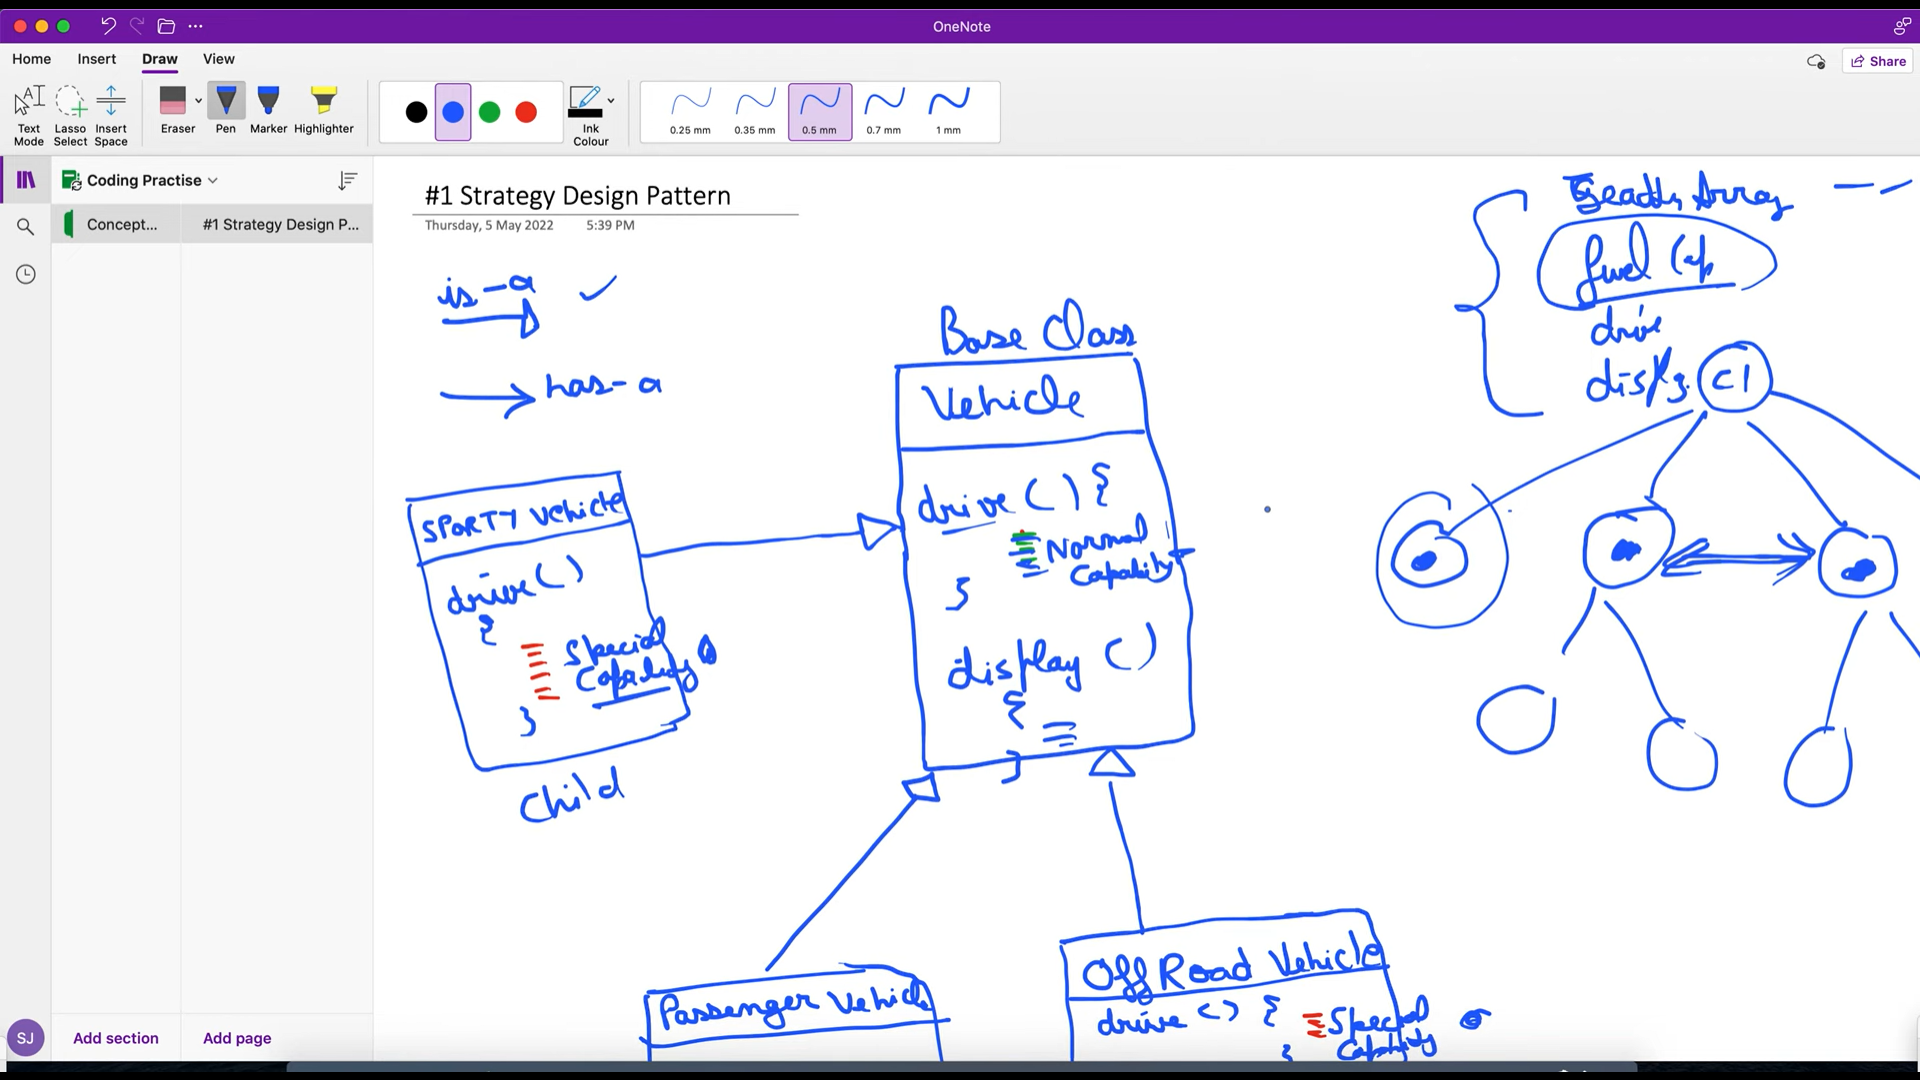 OneNote
Home Insert Draw View
Share
Text Mode
Lasso Select
Insert Space
Eraser
Pen
Marker
Highlighter
Ink Colour
0.25 mm
0.35 mm
0.5 mm
0.7 mm
1 mm
Coding Practise
Concept...
#1 Strategy Design P...
#1 Strategy Design Pattern
Thursday, 5 May 2022 5:39 PM
is-a
has-a
Base Class
Vehicle
drive () {
Normal
Capability
}
display ()
{
}
SPORTY Vehicle
drive ()
{
Special
Capability
}
Child
Passenger Vehicle
Off Road Vehicle
drive () {
Special
Capability
}
Array
fuel Cap
drive
C1
SJ
Add section
Add page